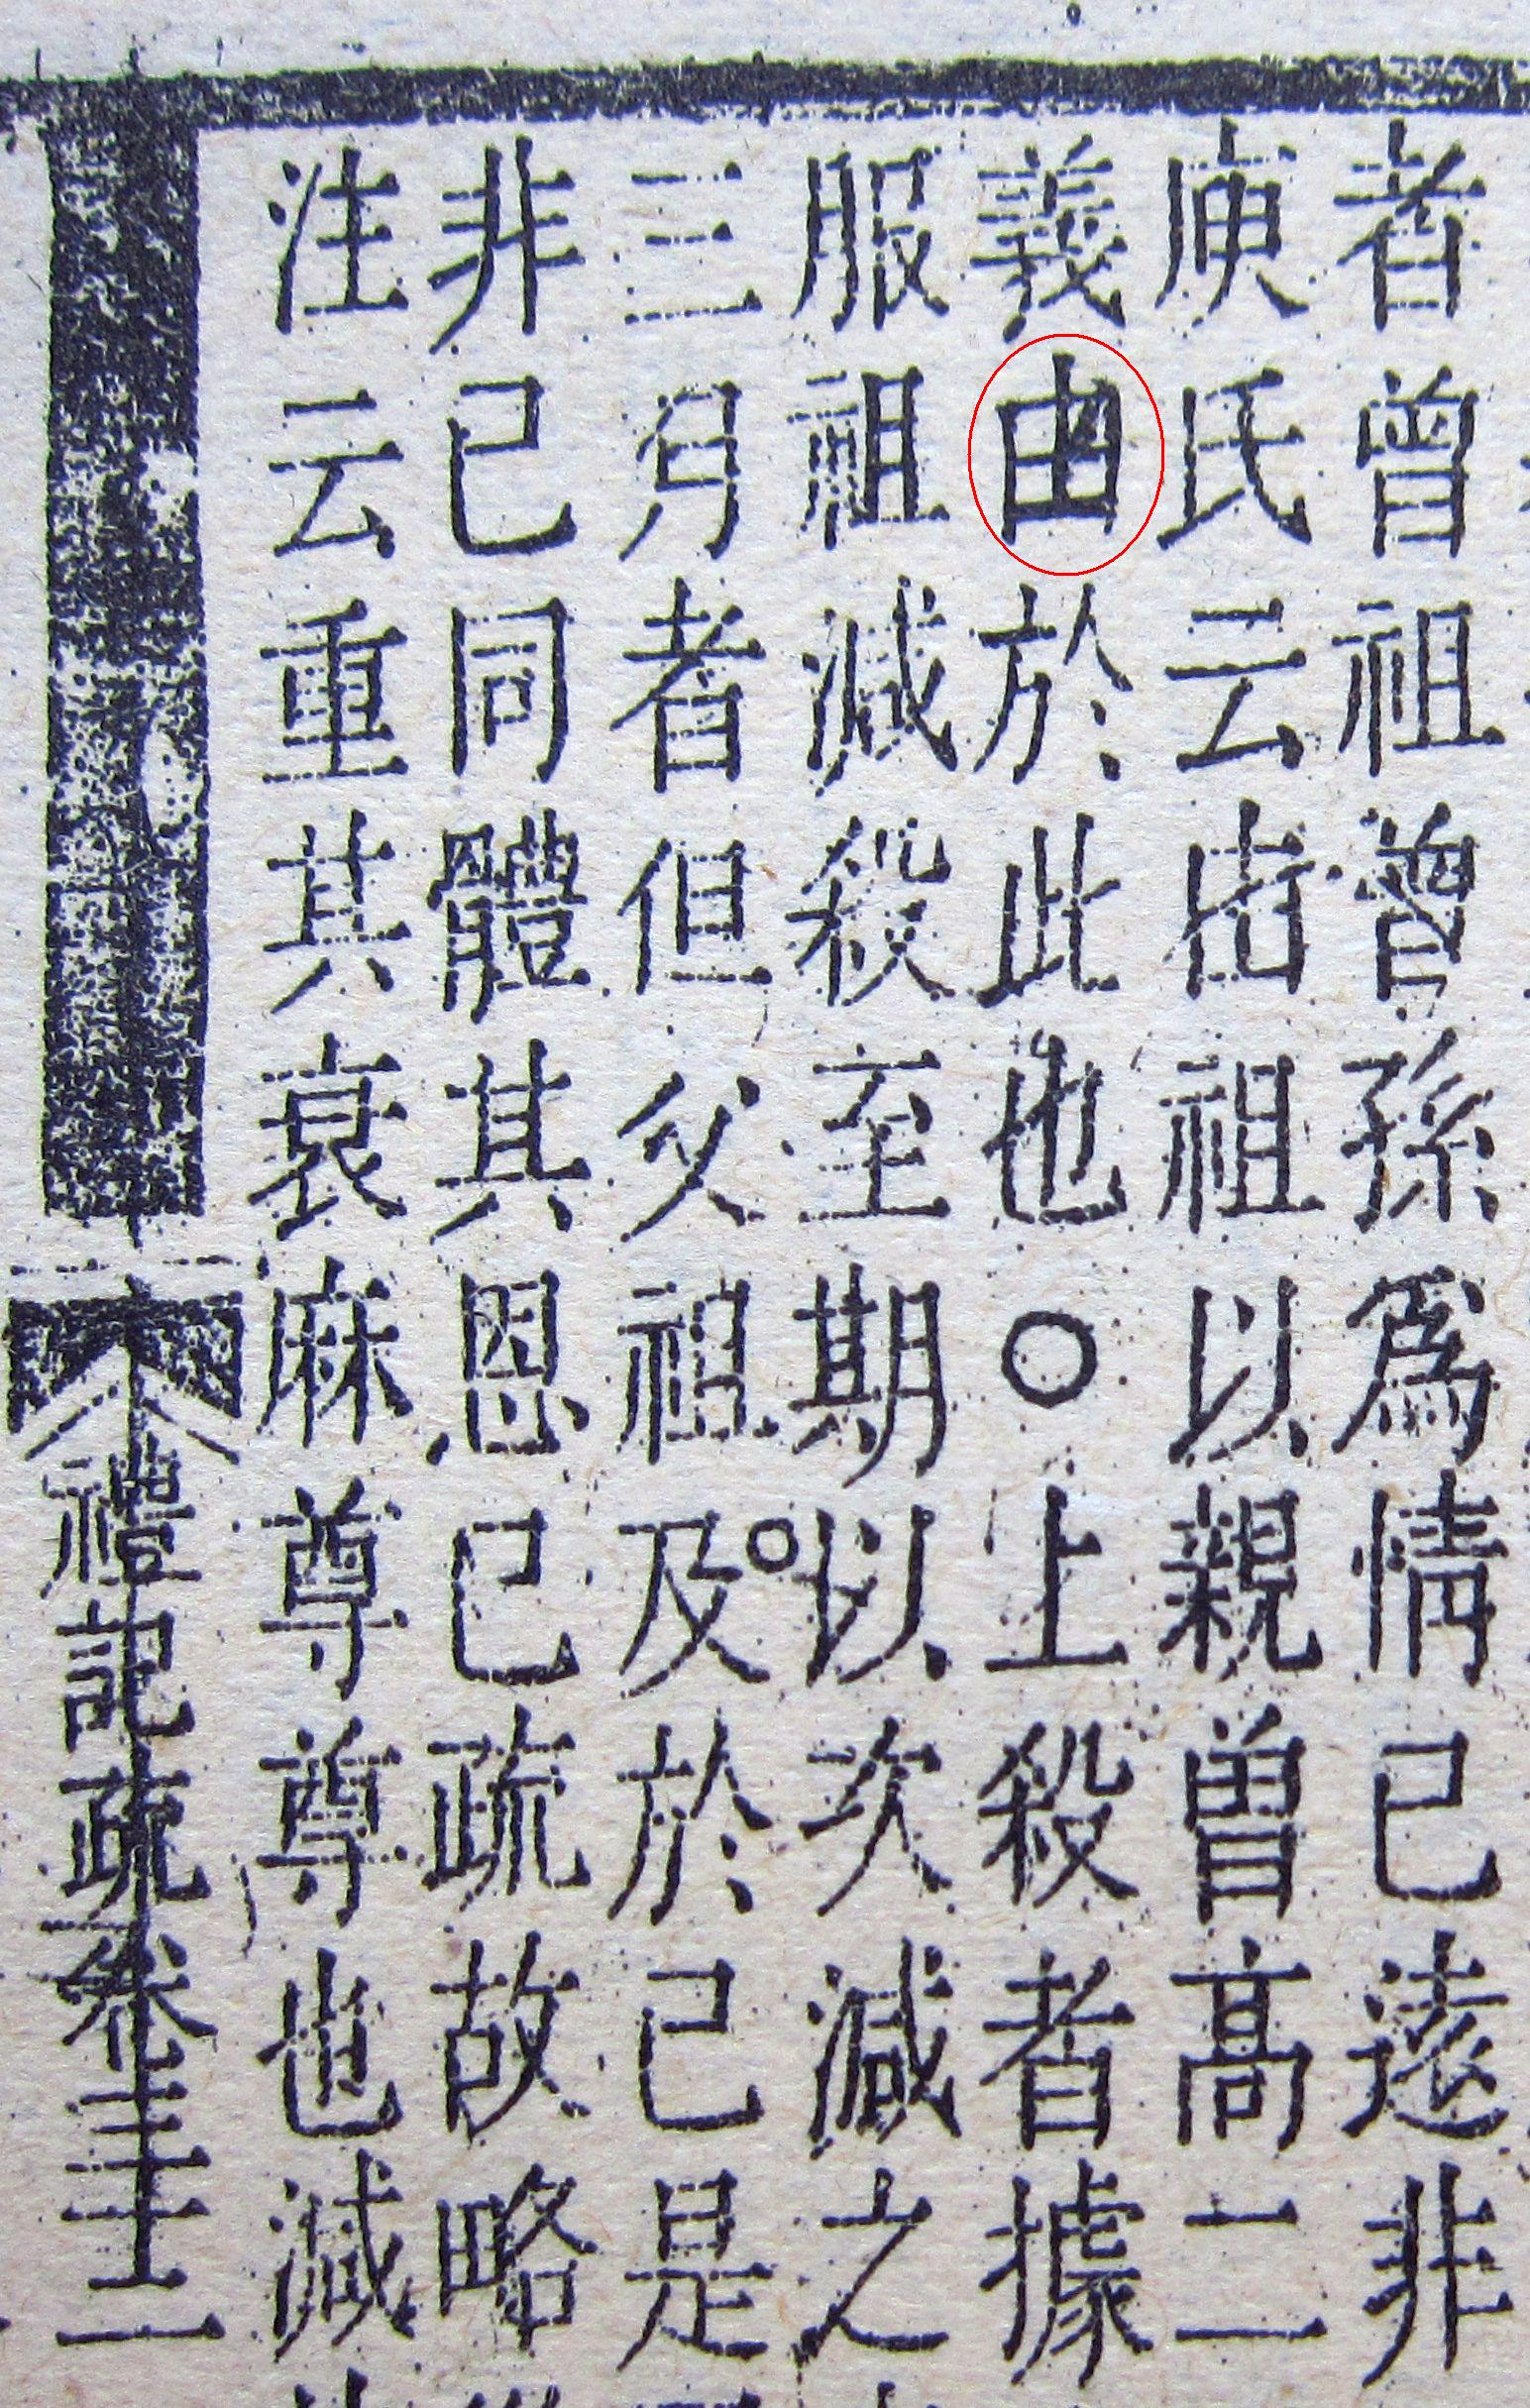 者曾祖曾孫爲情已遠非
庾氏云由祖以親曾高二
義由於此也○上殺者據
服祖減殺至期以次減之
三月者但父祖及於己是
非已同體其恩已疏故略
注云重其衰麻尊尊也減
禮記疏卷三十二